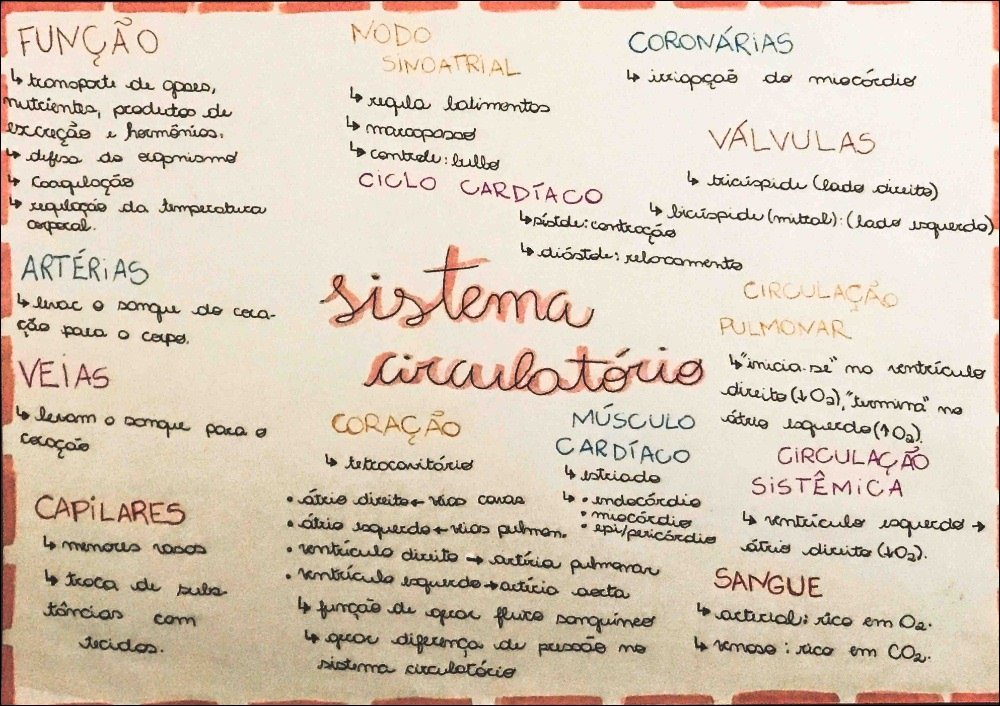 FUNÇÃO
↳ transporte de gases,
nutrientes, produtos de
excreção e hormônios.
↳ defesa do organismo
↳ coagulação
↳ regulação da temperatura
corporal.
ARTÉRIAS
↳ levar o sangue do cora-
ção para o corpo.
VEIAS
↳ levam o sangue para o
coração
CAPILARES
↳ menores vasos
↳ troca de subs
tâncias com
tecidos.
NODO
SINOATRIAL
↳ regula batimentos
↳ marcapasso
↳ controle: bulbo
CICLO CARDÍACO
↳ sístole: contração
↳ diástole: relaxamento
sistema
circulatório
CORAÇÃO
↳ tetracavitário
• átrio direito ← veias cavas
• átrio esquerdo ← veias pulmon.
• ventrículo direito → artéria pulmonar
• ventrículo esquerdo → artéria aorta
↳ função de gerar fluxo sanguíneo
↳ gerar diferença de pressão no
sistema circulatório
MÚSCULO
CARDÍACO
↳ estriado
↳ • endocárdio
• miocárdio
• epi/pericárdio
CORONÁRIAS
↳ irrigação do miocárdio
VÁLVULAS
↳ tricúspide (lado direito)
↳ bicúspide (mitral): (lado esquerdo)
CIRCULAÇÃO
PULMONAR
↳ "inicia-se" no ventrículo
direito (↓O₂), "termina" no
átrio esquerdo (↑O₂).
CIRCULAÇÃO
SISTÊMICA
↳ ventrículo esquerdo →
átrio direito (↓O₂).
SANGUE
↳ arterial: rico em O₂.
↳ venoso: rico em CO₂.